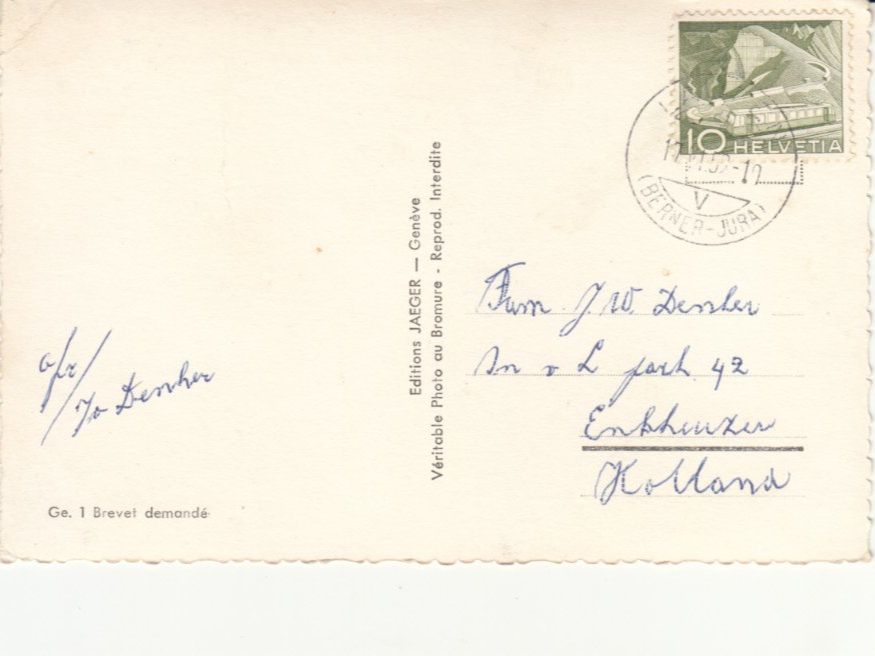 10 HELVETIA
V
(BERNER-JURA)
Editions JAEGER — Genève
Véritable Photo au Bromure - Reprod. Interdite
Fam. J. W. Densher
Sn v L park 42
Enkhuizen
Holland
afz/
Jo Densher
Ge. 1 Brevet demandé